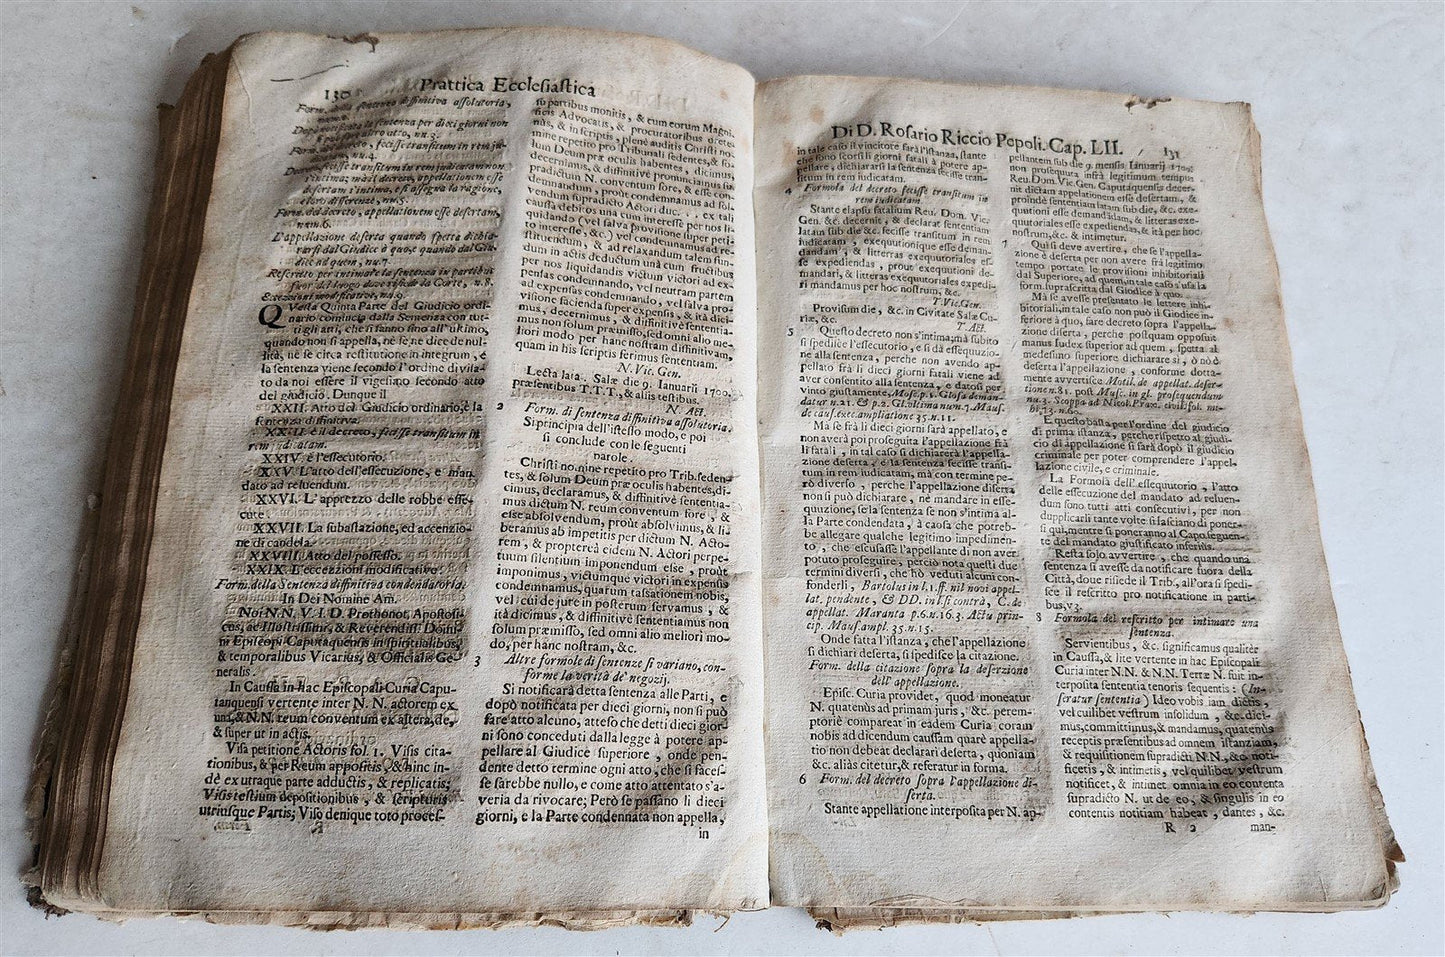 130 Prattica Ecclesiastica
Form. della sentenza diffinitiva assolutoria,
num.2.
Dopò notificata la sentenza per dieci giorni non
si può fare altro atto, nu.3.
Form. del decreto, fecisse transitum in rem ju-
dicatam, nu.4.
Decreto fecisse transitum in rem judicatam non
s'intima; mà il decreto, appellationem esse
desertam s'intima, e si assegna la ragione,
e loro differenze, nu.5.
Form. del decreto, appellationem esse desertam,
num.6.
L'appellazione deserta quando spetta dichia-
rarsi dal Giudice à quo, e quando dal Giu-
dice ad quem, nu.7.
Rescritto per intimare la sentenza in partibus
fuor del luogo dove risiede la Corte, n.8.
Eccezzioni modificative, nu.9.
QVesta Quinta Parte del Giudicio ordi-
nario comincia dalla Sentenza con tut-
ti gli atti, che si fanno sino all'ultimo,
quando non si appella, nè se ne dice de nul-
lità, nè se cerca restitutione in integrum, è
la sentenza viene secondo l'ordine divisa-
to da noi essere il vigesimo secondo atto
del giudicio. Dunque il
XXII. Atto del Giudicio ordinario, è la
sentenza diffinitiva.
XXIII. è il decreto, fecisse transitum in
rem judicatam.
XXIV. è l'essecutorio.
XXV. L'atto dell'essecuzione, e man-
dato ad reluendum.
XXVI. L'apprezzo delle robbe esse-
cute.
XXVII. La subastazione, ed accenzio-
ne di candela.
XXVIII. Atto del possesso.
XXIX. L'eccenzioni modificative.
Form. della Sentenza diffinitiva condendatoria.
In Dei Nomine Am.
Noi N.N. V. I. D. Prothonot. Apostoli-
cus, ac Illustrissimi, & Reverendiss. Domi-
ni Episcopi Caputaquensis in spiritualibus,
& temporalibus Vicarius, & Officialis Ge-
neralis.
In Caussa in hac Episcopali Curia Capu-
tanquensi vertente inter N. N. actorem ex
una, & N.N. reum conventum ex altera, de,
& super ut in actis.
Visa petitione Actoris fol. 1. Visis cita-
tionibus, & per Reum appositis, & hinc in-
dè ex utraque parte adductis, & replicatis;
Visis testium depositionibus, & scripturis
utriusque Partis; Viso denique toto proces-
su partibus monitis, & cum eorum Magni-
ficis Advocatis, & procuratoribus diete-
nùs, & in scriptis, plenè auditis Christi no-
mine repetito pro Tribunali sedentes, & so-
lum Deum præ oculis habentes, dicimus,
decernimus, & diffinitivè pronunciamus su-
pradictum N. conventum fore, & esse con-
demnandum, proùt condemnamus ad sol-
vendum supradicto Actori duc. . . ex tali
causa debitos una cum interesse per nos li-
quidando (vel salva provisione super peti-
to interesse, &c.) vel condemnamus ad re-
stituendum, & ad relaxandum talem fun-
dum in actis deductum unà cum fructibus
per nos liquidandis victum victori ad ex-
pensas condemnando, vel neutram partem
ad expensas condemnando, vel salva pro-
visione facienda super expensis, & ità dici-
mus, decernimus, & diffinitivè sententia-
mus non solum præmisso, sed omni alio me-
liori modo per hanc nostram diffinitivam,
quam in his scriptis ferimus sententiam.
N. Vic. Gen.
Lecta lata, Salæ die 9. Ianuarii 1700,
præsentibus T.T.T., & aliis testibus.
N. Act.
2 Form. di sentenza diffinitiva assolutoria.
Si principia dell'istesso modo, e poi
si conclude con le seguenti
parole.
Christi nomine repetito pro Trib. seden-
tes, & solum Deum præ oculis habentes, di-
cimus, declaramus, & diffinitivè sententia-
mus dictum N. reum conventum fore, &
esse absolvendum, proùt absolvimus, & li-
beramus ab impetitis per dictum N. Acto-
rem, & propterea eidem N. Actori perpe-
tuum silentium imponendum esse, proùt
imponimus, victumque victori in expensis
condemnamus, quarum taxationem nobis,
vel cui de jure in posterum servamus, &
ità dicimus, & diffinitivè sententiamus non
solum præmisso, sed omni alio meliori mo-
do, per hanc nostram, &c.
3 Altre formole di sentenze si variano, con-
forme la verità de' negozij.
Si notificarà detta sentenza alle Parti, e
dopò notificata per dieci giorni, non si può
fare atto alcuno, atteso che detti dieci gior-
ni sono conceduti dalla legge à potere ap-
pellare al Giudice superiore, onde pen-
dente detto termine ogni atto, che si facesse
se sarebbe nullo, e come atto attentato s'a-
veria da rivocare; Però se passano li dieci
giorni, e la Parte condennata non appella,
in
Di D. Rosario Riccio Pepoli. Cap. LII. 131
in tale caso il vincitore farà l'istanza, stante
che sono scorsi li giorni fatali à potere ap-
pellare, dichiararsi la sentenza fecisse tran-
situm in rem judicatam.
4 Formola del decreto fecisse transitum in
rem judicatam.
Stante elapsu fatalium Reu. Dom. Vic.
Gen. &c. decernit, & declarat sententiam
latam sub die &c. fecisse transitum in rem
judicatam, exequutionique esse deman-
dandam, & litteras exequutoriales es-
se expediendas, prout exequutioni de-
mandari, & litteras exequutoriales expedi-
ri mandamus per hoc nostrum, &c.
T. Vic. Gen.
Provisum die, &c. in Civitate Salæ Cu-
riæ, &c.
T. Act.
5 Questo decreto non s'intima; mà subito
si spedisce l'essecutorio, e si dà essequuzio-
ne alla sentenza, perche non avendo ap-
pellato frà li dieci giorni fatali viene ad
aver consentito alla sentenza, e datosi per
vinto giustamente, Mosc. p.1. Glosa deman-
datur n.21. & p.2. Gl. ultima num.7. Maus.
de caus. exec. ampliatione 35. n.11.
Ma se frà li dieci giorni sarà appellato, e
non averà poi proseguita l'appellazione frà
li fatali, in tal caso si dichiarerà l'appella-
zione deserta, e la sentenza fecisse transi-
tum in rem judicatam, mà con termine pe-
rò diverso, perche l'appellazione diserta
non si può dichiarare, nè mandare in esse-
quuzione, se la sentenza non s'intima al-
la Parte condendata, à causa che potreb-
be allegare qualche legitimo impedimen-
to, che escusasse l'appellante di non aver
potuto proseguire, perciò nota questi due
termini diversi, che hò veduti alcuni con-
fonderli, Bartolus in l.1. ff. nil novi appel-
lat. pendente, & DD. in l. si contrà, C. de
appellat. Maranta p.6. u.16.3. Actu prin-
cip. Maus. ampl. 35. n.15.
Onde fatta l'istanza, che l'appellazione
si dichiari deserta, si spedisce la citazione.
Form. della citazione sopra la deserzione
dell'appellazione.
Episc. Curia providet, quod moneatur
N. quatenùs ad primam juris, &c. perem-
ptoriè compareat in eadem Curia coram
nobis ad dicendum caussam quarè appella-
tio non debeat declarari deserta, quoniam
&c. aliàs citetur, & referatur in forma.
6 Form. del decreto sopra l'appellazione di-
serta.
Stante appellatione interposita per N. ap-
pellantem sub die 9. mensis Ianuarii 1700.
non prosequuta infrà legitimum tempus
Reu. Dom. Vic. Gen. Caputaquensis decer-
nit dictam appellationem esse desertam, &
proindè sententiam latam sub die, &c. exe-
quutioni esse demandadam, & litteras exe-
quutoriales esse expediendas, & ità per hoc
nostrum, &c. & intimetur.
7 Qui si deve avertire, che se l'appella-
zione è deserta per non avere frà legitimo
tempo portate le provisioni inhibitoriali
dal Superiore, ad quem, in tale caso s'usa la
form. suprascritta dal Giudice à quo.
Mà se avesse presentato le lettere inhibi-
toriali, in tale caso non può il Giudice in-
feriore à quo, fare decreto sopra l'appella-
zione diserta, perche postquam opposuit
manus Iudex superior ad quem, spetta al
medesimo superiore dichiarare si, ò nò di-
serta l'appellazione, conforme dotta-
mente avvertisce Motil. de appellat. deser-
tione n.81. post Musc. in gl. prosequendum
nu.3. Scoppa ad Nicol. Prax. civil. fol. mi-
hi, 73. n.60.
E questo basta per l'ordine del giudicio
di prima istanza, perche rispetto al giudi-
cio di appellazione si farà dopò il giudicio
criminale per poter comprendere l'appel-
lazione civile, e criminale.
La Formola dell'essequutorio, l'atto
delle essecuzione del mandato ad reluen-
dum sono tutti atti consecutivi, per non
dupplicarli tante volte si lasciano di poner-
si qui, mentre si poneranno al Cap. seguen-
te del mandato giustificato inferiùs.
Resta solo avvertire, che quando una
sentenza si avesse da notificare fuora della
Città, doue risiede il Trib., all'ora si spedi-
sce il rescritto pro notificatione in parti-
bus, v3.
8 Formola del rescritto per intimare una
sentenza.
Servientibus, &c. significamus qualiter
in Caussa, & lite vertente in hac Episcopali
Curia inter N.N. & N.N. Terræ N. fuit in-
terposita sententia tenoris sequentis: (In-
seratur sententia) Ideo vobis iam dictis,
vel cuilibet vestrum insolidum, &c. dici-
mus, committimus, & mandamus, quatenùs
receptis præsentibus ad omnem istanziam,
& requisitionem supradicti N.N., &c. noti-
ficetis, & intimetis, vel quilibet vestrum
notificet, & intimet omnia in eo contenta
supradicto N. ut de eo, & singulis in eo
contentis notitiam habeat, dantes, &c.
R 2 man-